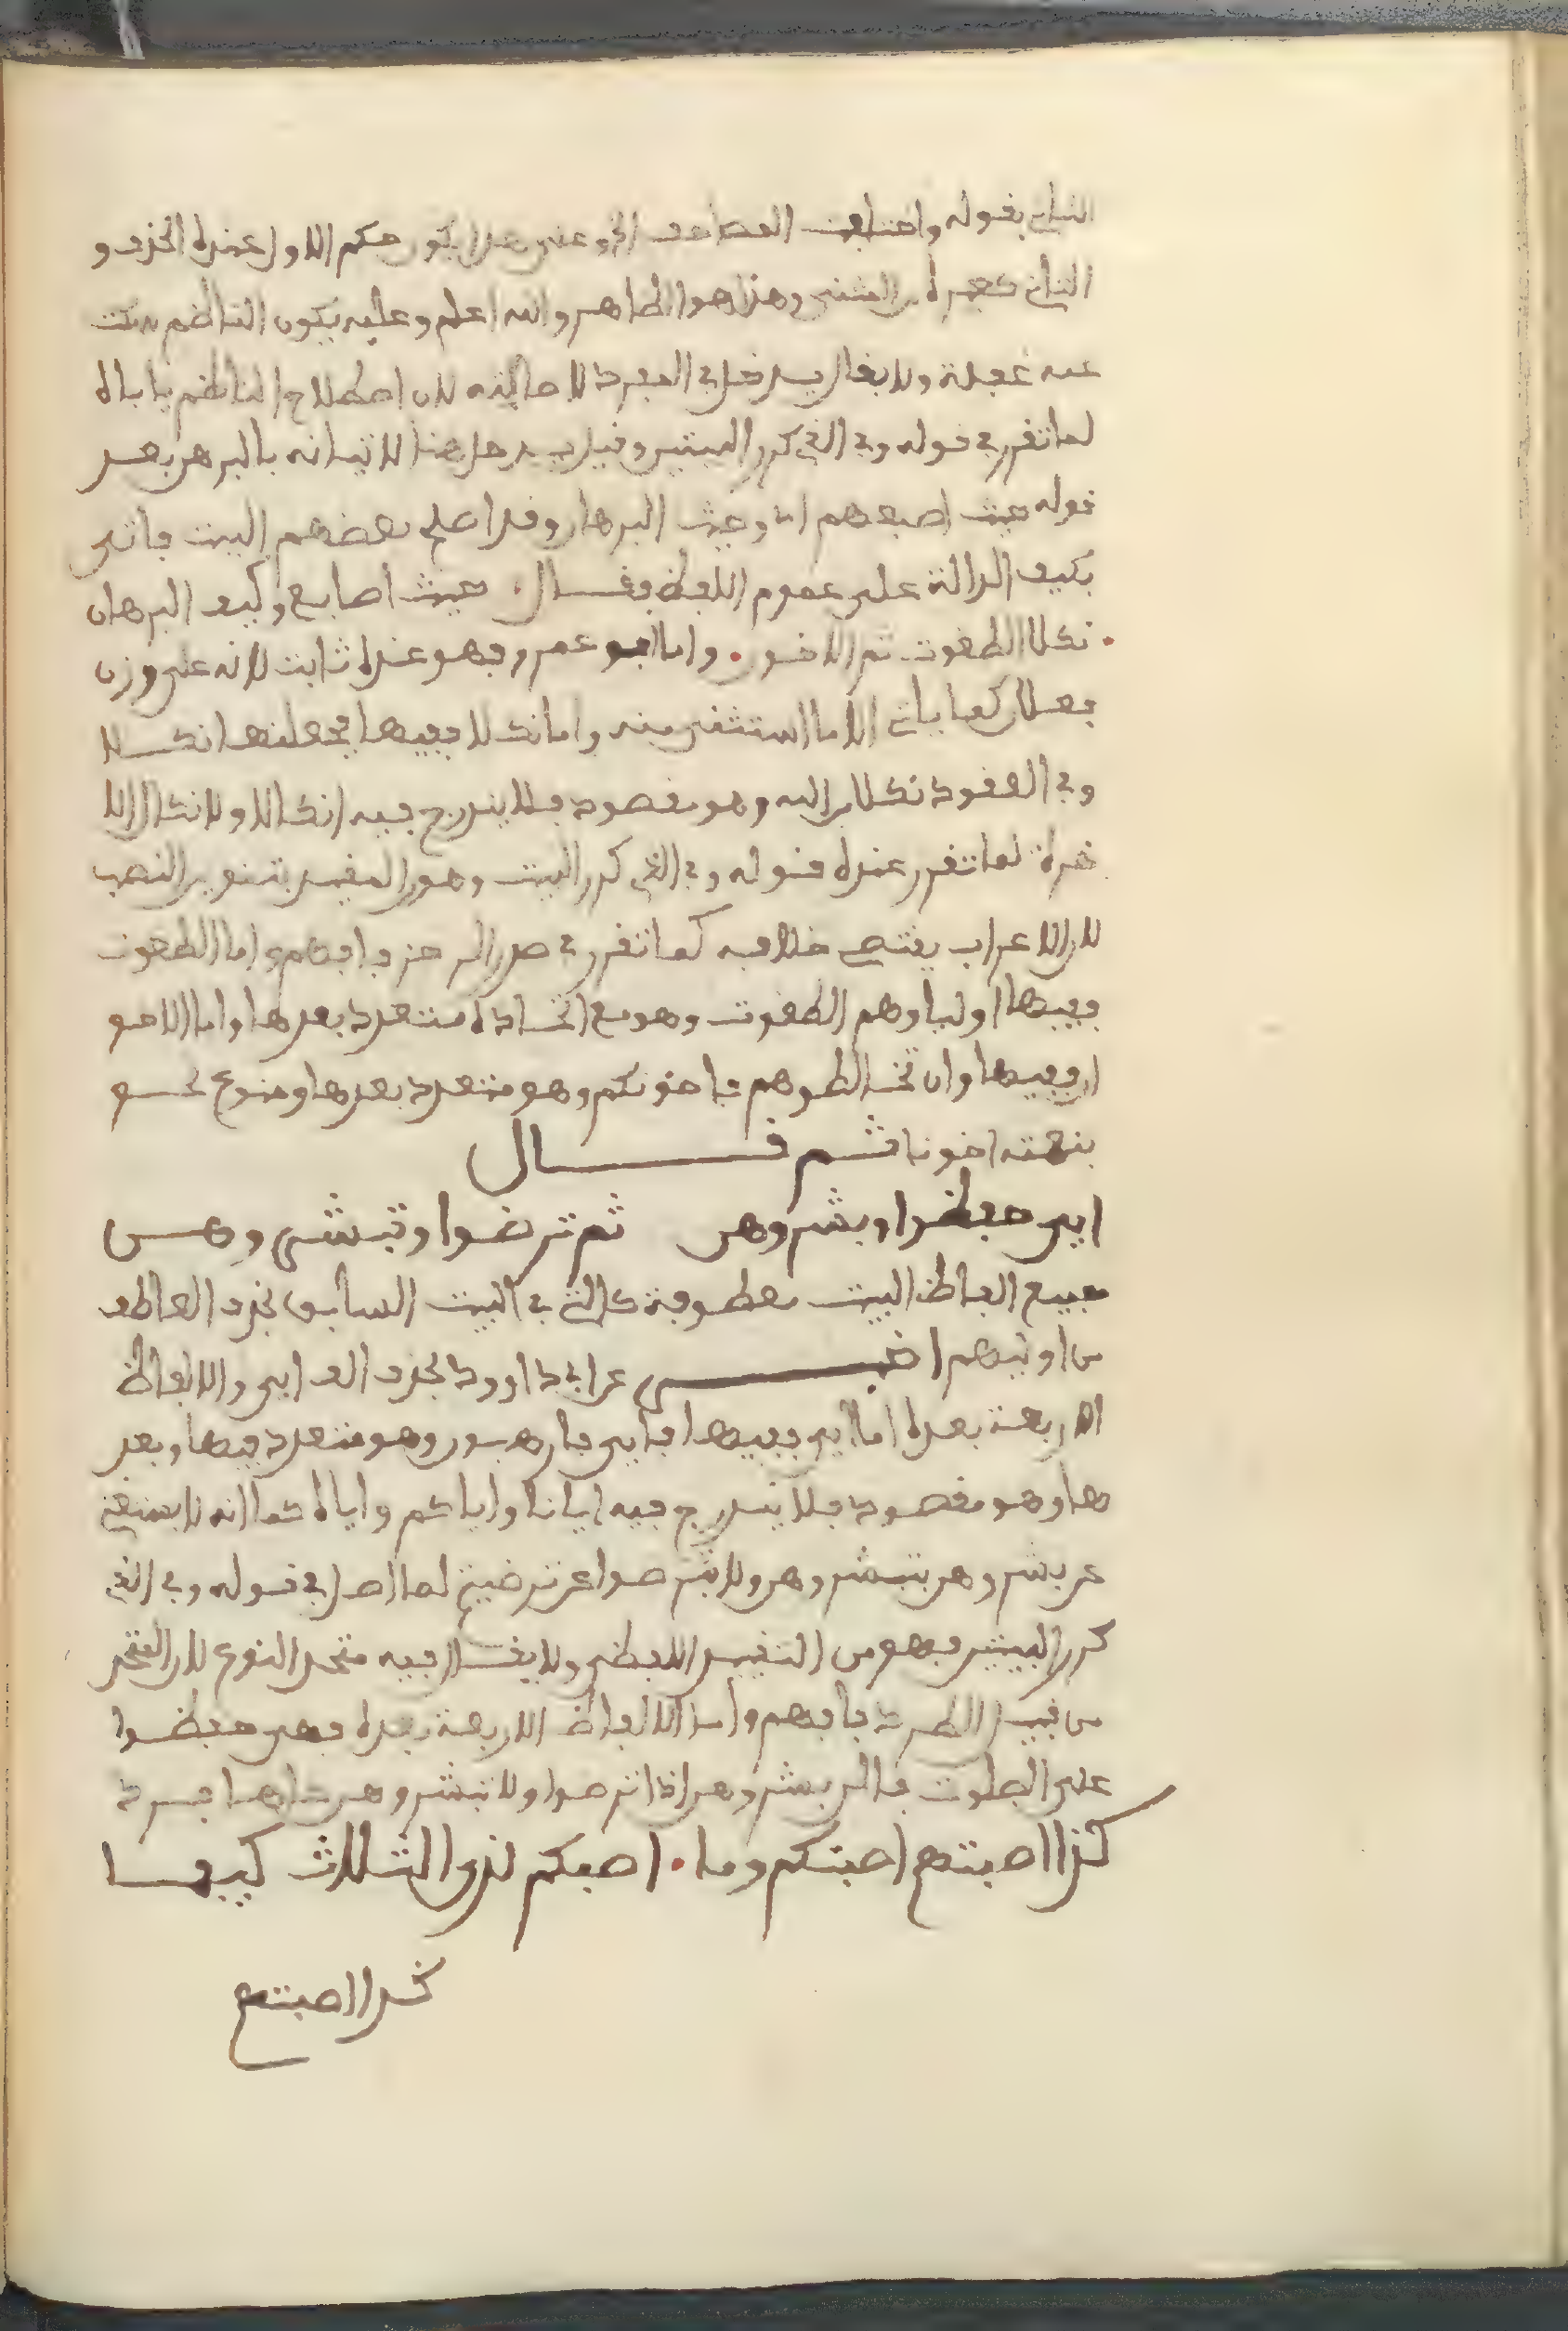 الثاني بقوله واختلفت المصاحف الخ وعلى هذا يكون حكم الاول عنده الحذف و
الثاني كغيره من المثنى وهذا هو الظاهر والله اعلم وعليه يكون الناظم سكت
عنه غفلة ولا يقال يدخل في المفرد لاصالته لان اصطلاح الناظم يا باه
لما تقرر في قوله وفي الذي كرر البيتين وقيل يدخل هنا لاتيانه بالبرهن بعد
قوله حيث اصبعهم اي وحيث البرهان وقد اصلح بعضهم البيت فاتى
بكيف الدالة على عموم اللفظ فقال حيث اصابع وكيف البرهان
نكلا الطغوت ثم الاخون واما ابو عمرو فهو عنده ثابت لانه على وزن
فعلان كما ياتي الا ما استثنى منه واما نكلا ففيها فجعلنها نكلا
وفي العقود نكلا من الله وهو مقصود فلا يندرج فيه انكالا ولا نكال الا
خرة لما تقرر عنده قوله وفي الذي كرر البيت وهو المقيد بتنوين النصب
لان الاعراب يفتح خلافه كما تقرر في صدر الرجز فافهم واما الطغوت
ففيها اولياوهم الطغوت وهو مع اتحاده متعدد بعدها واما الاخو
ان ففيها وان تخالطوهم فاخونكم وهو متعدد بعدها ومنوع نحو
بنعمته اخونا ثم قال
ايى حفظوا وبشروهن ثم ترضوا وتبشى وهن
جميع الفاظ البيت معطوفة كالتي في البيت السابق بحذف العاطف
من اوليهم اخبى عن ابي داوود بحذف الف ايى والالفاظ
الاربعة بعده اما ايى ففيها فايى فارهبون وهو متعدد فيها وبعد
ها وهو مقصود فلا يندرج فيه ايانا واياكم واياه كما انه لا يستغنى
عن بشروهن بتبشروهن ولا بترضوا عن ترضيتم لما اصل في قوله وفي الذي
كرر البيتين فهو من التقييد اللفظي ولا يقال فيه متحد النوع لان المتحد
من قبيل المطرد فافهم واما الالفاظ الاربعة بعده فهي حفظوا
على الصلوت فالن بشروهن اذا ترضوا ولا تبشروهن حذفها فرد
كذا اصبتهم اصبتكم وما اصبكم لدى الثلاث كيفما
كذا اصبتهم